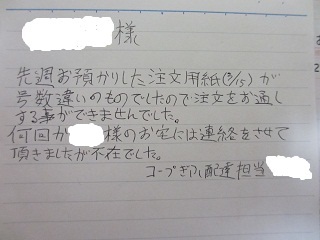 様
先週お預かりした注文用紙(8/15)が
号数違いのものでしたので注文をお通し
する事ができませんでした。
何回か様のお宅には連絡をさせて
頂きましたが不在でした。
コープぎふ配達担当